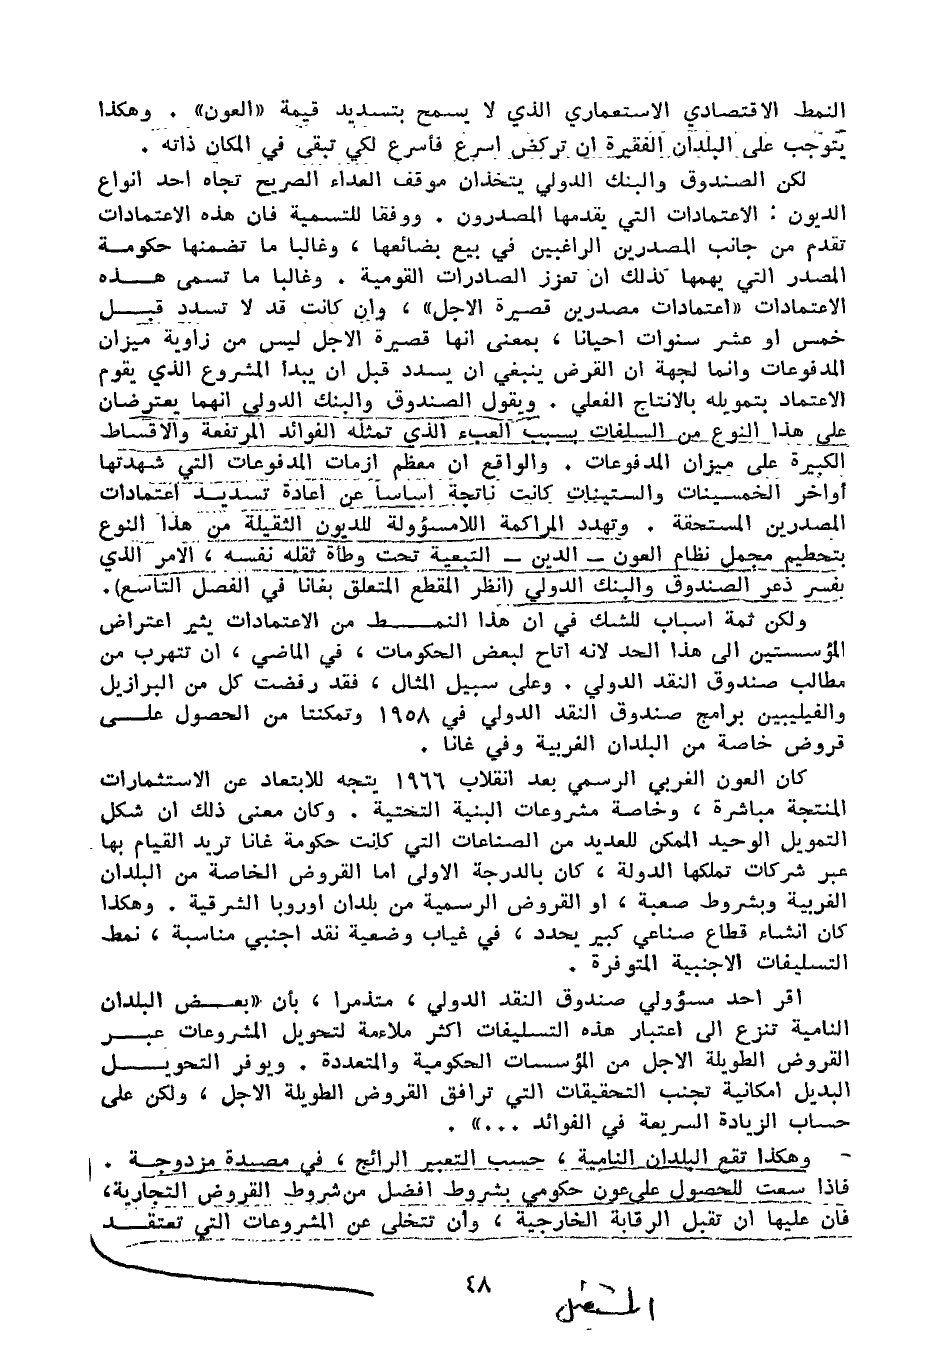 النمط الاقتصادي الاستعماري الذي لا يسمح بتسديد قيمة «العون» . وهكذا
يتوجب على البلدان الفقيرة ان تركض اسرع فأسرع لكي تبقى في المكان ذاته .
لكن الصندوق والبنك الدولي يتخذان موقف العداء الصريح تجاه احد انواع
الديون : الاعتمادات التي يقدمها المصدرون . ووفقا للتسمية فان هذه الاعتمادات
تقدم من جانب المصدرين الراغبين في بيع بضائعها ، وغالبا ما تضمنها حكومة
المصدر التي يهمها كذلك ان تعزز الصادرات القومية . وغالبا ما تسمى هذه
الاعتمادات «اعتمادات مصدرين قصيرة الاجل» ، وان كانت قد لا تسدد قبل
خمس او عشر سنوات احيانا ، بمعنى انها قصيرة الاجل ليس من زاوية ميزان
المدفوعات وانما لجهة ان القرض ينبغي ان يسدد قبل ان يبدأ المشروع الذي يقوم
الاعتماد بتمويله بالانتاج الفعلي . ويقول الصندوق والبنك الدولي انهما يعترضان
على هذا النوع من السلفات بسبب العبء الذي تمثله الفوائد المرتفعة والاقساط
الكبيرة على ميزان المدفوعات . والواقع ان معظم ازمات المدفوعات التي شهدتها
أواخر الخمسينات والستينات كانت ناتجة اساسا عن اعادة تسديد اعتمادات
المصدرين المستحقة . وتهدد المراكمة اللامسؤولة للديون الثقيلة من هذا النوع
بتحطيم مجمل نظام العون ــ الدين ــ التبعية تحت وطأة ثقله نفسه ، الامر الذي
يفسر ذعر الصندوق والبنك الدولي (انظر المقطع المتعلق بغانا في الفصل التاسع).
ولكن ثمة اسباب للشك في ان هذا النمط من الاعتمادات يثير اعتراض
المؤسستين الى هذا الحد لانه اتاح لبعض الحكومات ، في الماضي ، ان تتهرب من
مطالب صندوق النقد الدولي . وعلى سبيل المثال ، فقد رفضت كل من البرازيل
والفيليبين برامج صندوق النقد الدولي في ١٩٥٨ وتمكنتا من الحصول على
قروض خاصة من البلدان الغربية وفي غانا .
كان العون الغربي الرسمي بعد انقلاب ١٩٦٦ يتجه للابتعاد عن الاستثمارات
المنتجة مباشرة ، وخاصة مشروعات البنية التحتية . وكان معنى ذلك ان شكل
التمويل الوحيد الممكن للعديد من الصناعات التي كانت حكومة غانا تريد القيام بها
عبر شركات تملكها الدولة ، كان بالدرجة الاولى اما القروض الخاصة من البلدان
الغربية وبشروط صعبة ، او القروض الرسمية من بلدان اوروبا الشرقية . وهكذا
كان انشاء قطاع صناعي كبير يحدد ، في غياب وضعية نقد اجنبي مناسبة ، نمط
التسليفات الاجنبية المتوفرة .
اقر احد مسؤولي صندوق النقد الدولي ، متذمرا ، بأن «بعض البلدان
النامية تنزع الى اعتبار هذه التسليفات اكثر ملاءمة لتحويل المشروعات عبر
القروض الطويلة الاجل من المؤسسات الحكومية والمتعددة . ويوفر التحويل
البديل امكانية تجنب التحقيقات التي ترافق القروض الطويلة الاجل ، ولكن على
حساب الزيادة السريعة في الفوائد ...» .
- وهكذا تقع البلدان النامية ، حسب التعبير الرائج ، في مصيدة مزدوجة .
فاذا سعت للحصول على عون حكومي بشروط افضل من شروط القروض التجارية،
فان عليها ان تقبل الرقابة الخارجية ، وان تتخلى عن المشروعات التي تعتقد
٤٨